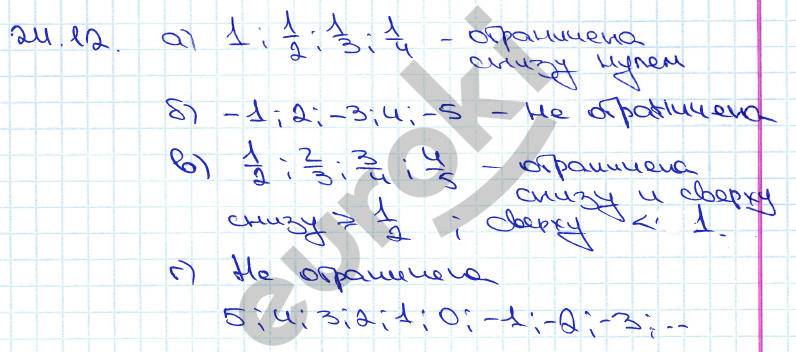 24.12. а) 1; 1/2; 1/3; 1/4 – ограничена
снизу нулем
б) -1; 2; -3; 4; -5 – не ограничена
в) 1/2; 2/3; 3/4; 4/5 – ограничена
снизу и сверху
снизу ≥ 1/2 ; сверху < 1.
г) Не ограничена
5; 4; 3; 2; 1; 0; -1; -2; -3; ...
euroki